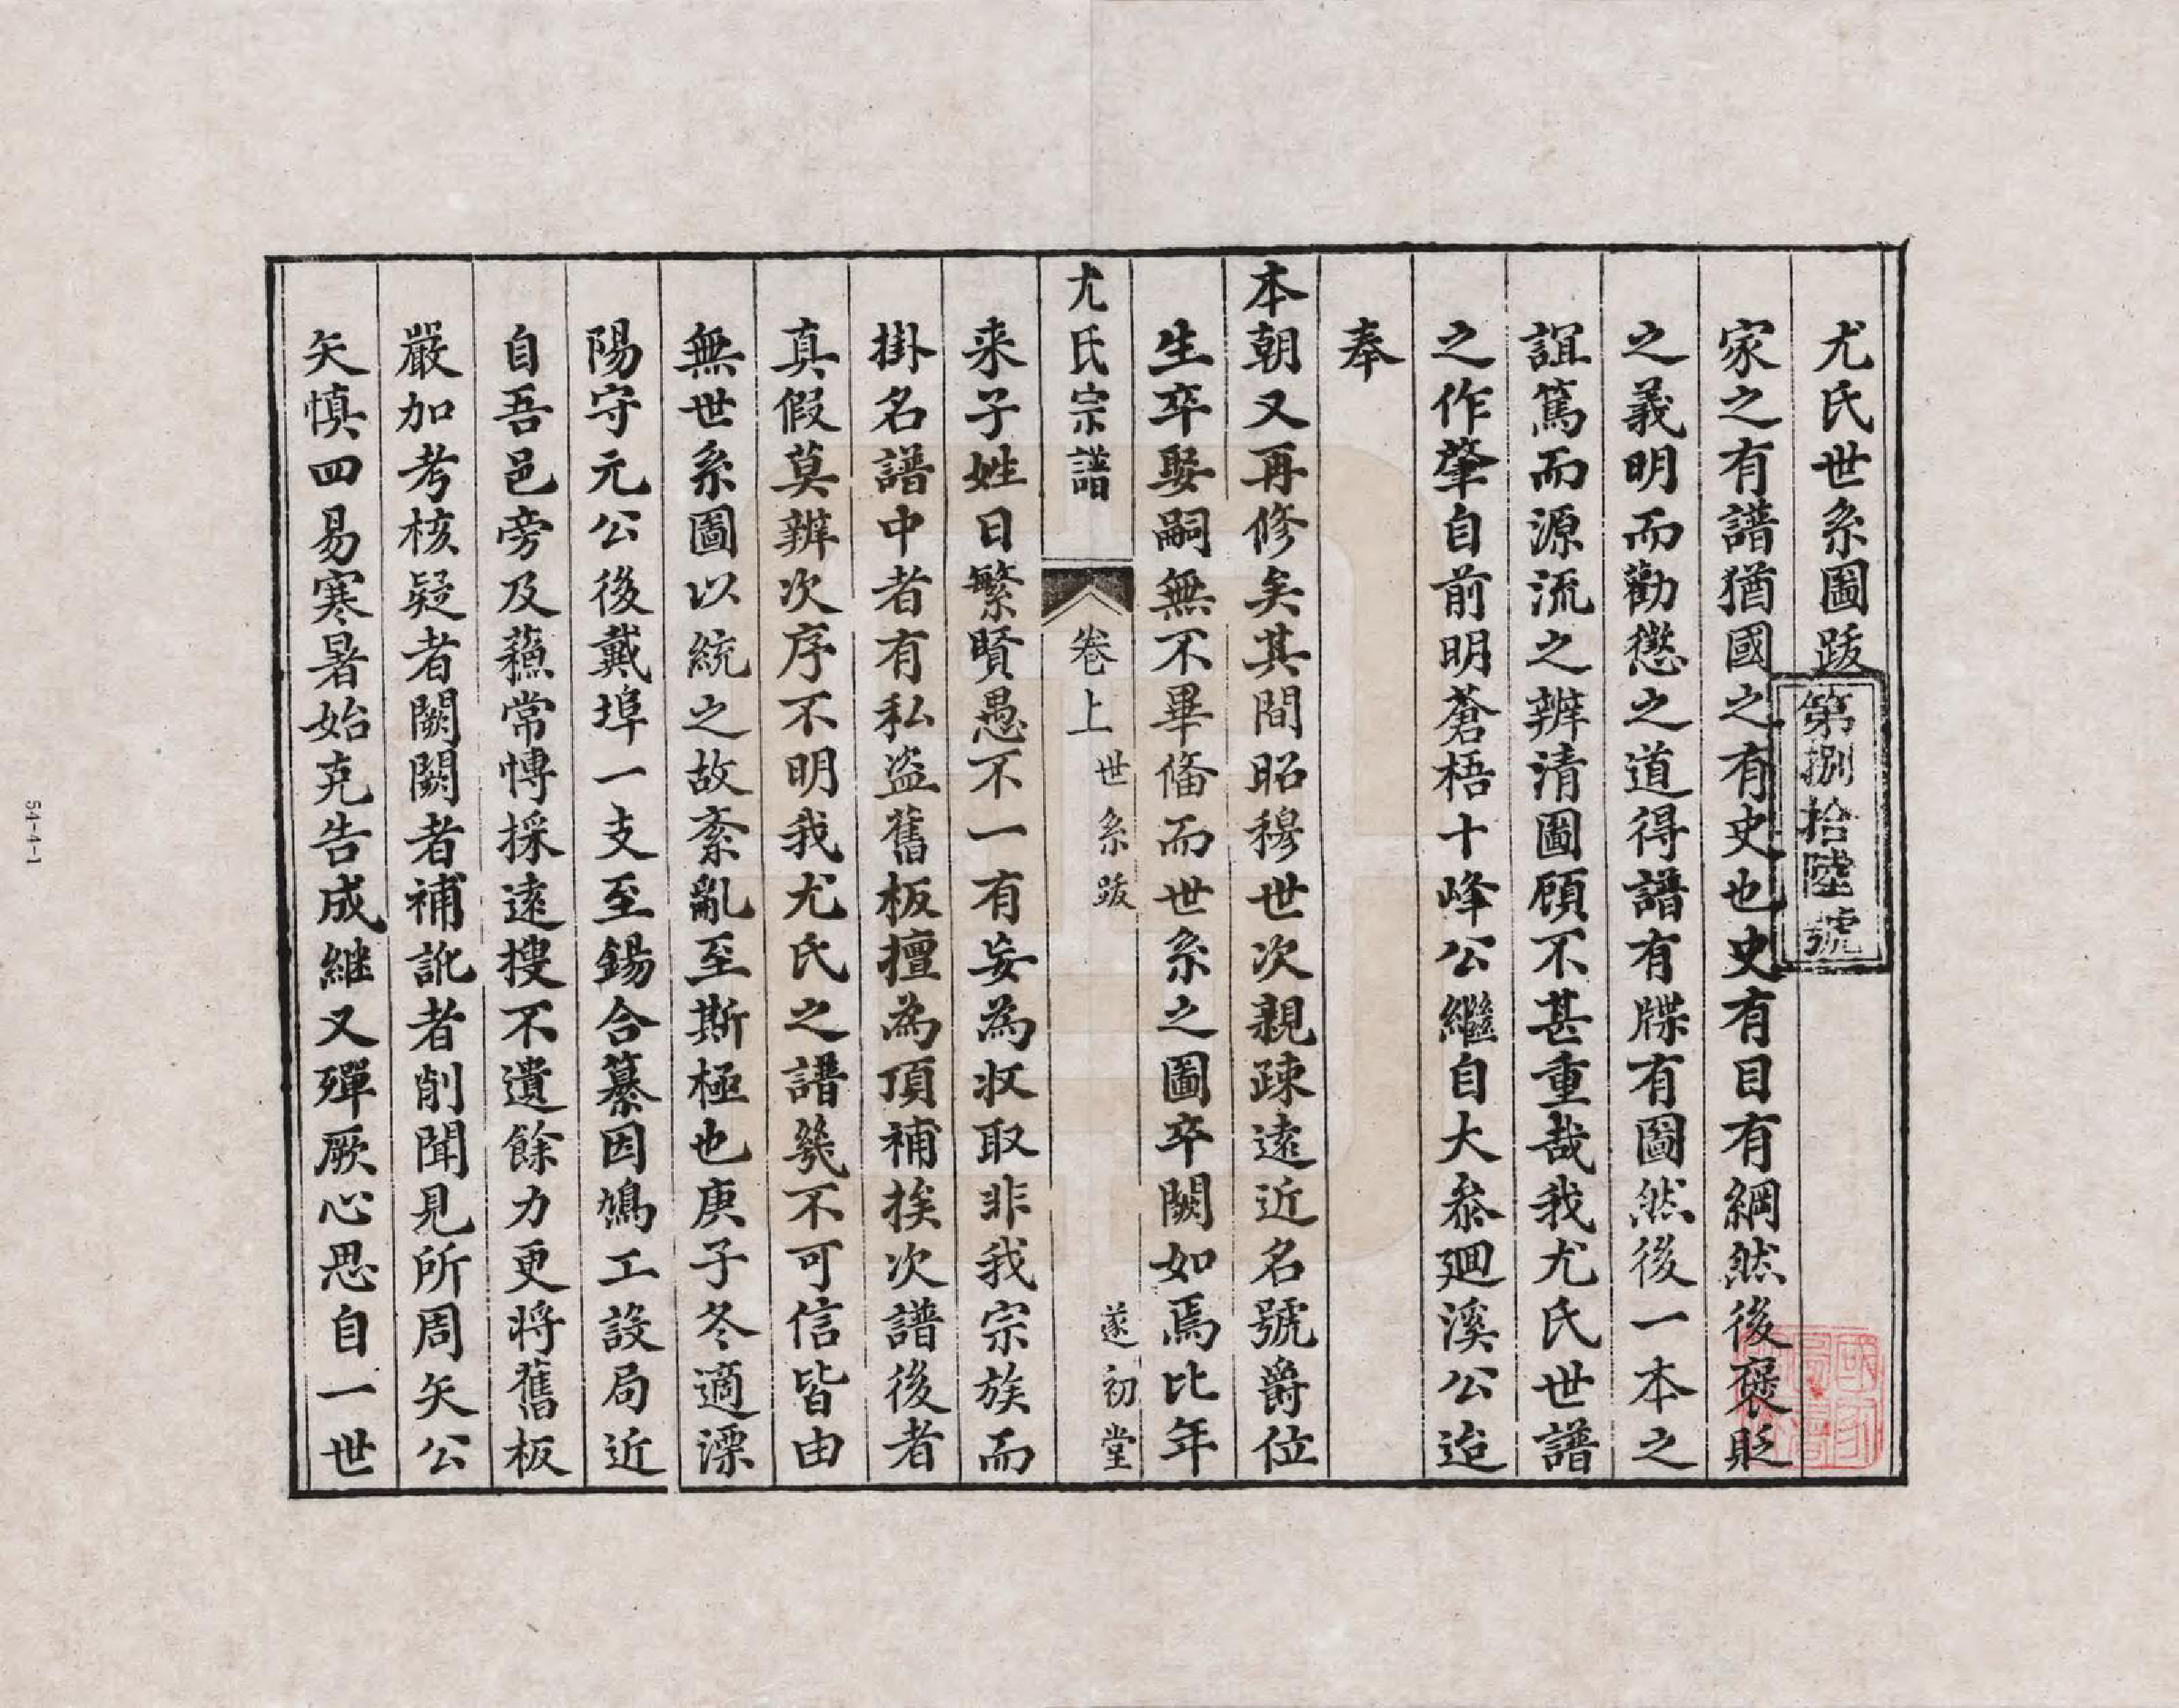 尤氏世系圖跋
第捌拾陸號
家之有譜猶國之有史也史有目有綱然後褒貶
之義明而勸懲之道得譜有牒有圖然後一本之
誼篤而源流之辨清圖顧不甚重哉我尤氏世譜
之作肇自前明蒼梧十峰公繼自大叅廻溪公迨
奉
本朝又再修矣其間昭穆世次親疎遠近名號爵位
生卒娶嗣無不畢俻而世系之圖卒闕如焉比年
尤氏宗譜
卷上
世系跋
遂初堂
来子姓日繁賢愚不一有妄為収取非我宗族而
掛名譜中者有私盗舊板擅為頂補挨次譜後者
真假莫辨次序不明我尤氏之譜幾不可信皆由
無世系圖以統之故紊亂至斯極也庚子冬適溧
陽守元公後戴埠一支至錫合纂因鳩工設局近
自吾邑旁及蘓常慱採遠搜不遺餘力更将舊板
嚴加考核疑者闕闕者補訛者削聞見所周矢公
矢慎四易寒暑始克告成継又殫厥心思自一世
54-4-1